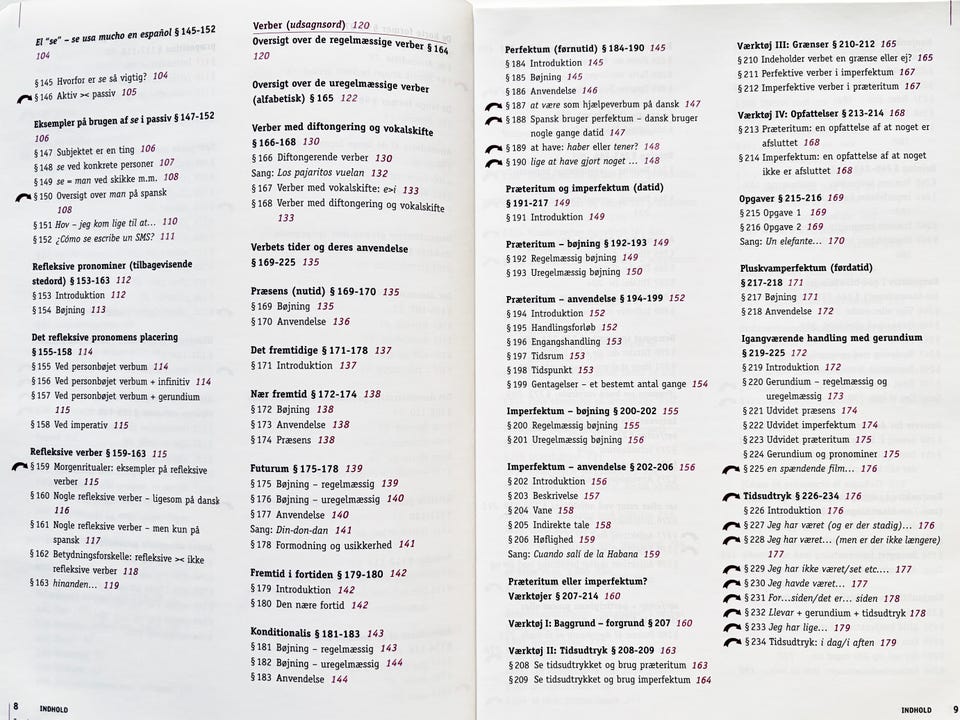 El "se" – se usa mucho en español § 145-152
104
§ 145 Hvorfor er se så vigtig? 104
§ 146 Aktiv >< passiv 105
Eksempler på brugen af se i passiv § 147-152
106
§ 147 Subjektet er en ting 106
§ 148 se ved konkrete personer 107
§ 149 se = man ved skikke m.m. 108
§ 150 Oversigt over man på spansk
108
§ 151 Hov – jeg kom lige til at... 110
§ 152 ¿Cómo se escribe un SMS? 111
Refleksive pronominer (tilbagevisende
stedord) § 153-163 112
§ 153 Introduktion 112
§ 154 Bøjning 113
Det refleksive pronomens placering
§ 155-158 114
§ 155 Ved personbøjet verbum 114
§ 156 Ved personbøjet verbum + infinitiv 114
§ 157 Ved personbøjet verbum + gerundium
115
§ 158 Ved imperativ 115
Refleksive verber § 159-163 115
§ 159 Morgenritualer: eksempler på refleksive
verber 115
§ 160 Nogle refleksive verber – ligesom på dansk
116
§ 161 Nogle refleksive verber – men kun på
spansk 117
§ 162 Betydningsforskelle: refleksive >< ikke
refleksive verber 118
§ 163 hinanden... 119
8 INDHOLD
Verber (udsagnsord) 120
Oversigt over de regelmæssige verber § 164
120
Oversigt over de uregelmæssige verber
(alfabetisk) § 165 122
Verber med diftongering og vokalskifte
§ 166-168 130
§ 166 Diftongerende verber 130
Sang: Los pajaritos vuelan 132
§ 167 Verber med vokalskifte: e>i 133
§ 168 Verber med diftongering og vokalskifte
133
Verbets tider og deres anvendelse
§ 169-225 135
Præsens (nutid) § 169-170 135
§ 169 Bøjning 135
§ 170 Anvendelse 136
Det fremtidige § 171-178 137
§ 171 Introduktion 137
Nær fremtid § 172-174 138
§ 172 Bøjning 138
§ 173 Anvendelse 138
§ 174 Præsens 138
Futurum § 175-178 139
§ 175 Bøjning – regelmæssig 139
§ 176 Bøjning – uregelmæssig 140
§ 177 Anvendelse 140
Sang: Din-don-dan 141
§ 178 Formodning og usikkerhed 141
Fremtid i fortiden § 179-180 142
§ 179 Introduktion 142
§ 180 Den nære fortid 142
Konditionalis § 181-183 143
§ 181 Bøjning – regelmæssig 143
§ 182 Bøjning – uregelmæssig 144
§ 183 Anvendelse 144
Perfektum (førnutid) § 184-190 145
§ 184 Introduktion 145
§ 185 Bøjning 145
§ 186 Anvendelse 146
§ 187 at være som hjælpeverbum på dansk 147
§ 188 Spansk bruger perfektum – dansk bruger
nogle gange datid 147
§ 189 at have: haber eller tener? 148
§ 190 lige at have gjort noget ... 148
Præteritum og imperfektum (datid)
§ 191-217 149
§ 191 Introduktion 149
Præteritum – bøjning § 192-193 149
§ 192 Regelmæssig bøjning 149
§ 193 Uregelmæssig bøjning 150
Præteritum – anvendelse § 194-199 152
§ 194 Introduktion 152
§ 195 Handlingsforløb 152
§ 196 Engangshandling 153
§ 197 Tidsrum 153
§ 198 Tidspunkt 153
§ 199 Gentagelser – et bestemt antal gange 154
Imperfektum – bøjning § 200-202 155
§ 200 Regelmæssig bøjning 155
§ 201 Uregelmæssig bøjning 156
Imperfektum – anvendelse § 202-206 156
§ 202 Introduktion 156
§ 203 Beskrivelse 157
§ 204 Vane 158
§ 205 Indirekte tale 158
§ 206 Høflighed 159
Sang: Cuando salí de la Habana 159
Præteritum eller imperfektum?
Værktøjer § 207-214 160
Værktøj I: Baggrund – forgrund § 207 160
Værktøj II: Tidsudtryk § 208-209 163
§ 208 Se tidsudtrykket og brug præteritum 163
§ 209 Se tidsudtrykket og brug imperfektum 164
Værktøj III: Grænser § 210-212 165
§ 210 Indeholder verbet en grænse eller ej? 165
§ 211 Perfektive verber i imperfektum 167
§ 212 Imperfektive verber i præteritum 167
Værktøj IV: Opfattelser § 213-214 168
§ 213 Præteritum: en opfattelse af at noget er
afsluttet 168
§ 214 Imperfektum: en opfattelse af at noget
ikke er afsluttet 168
Opgaver § 215-216 169
§ 215 Opgave 1 169
§ 216 Opgave 2 169
Sang: Un elefante... 170
Pluskvamperfektum (førdatid)
§ 217-218 171
§ 217 Bøjning 171
§ 218 Anvendelse 172
Igangværende handling med gerundium
§ 219-225 172
§ 219 Introduktion 172
§ 220 Gerundium – regelmæssig og
uregelmæssig 173
§ 221 Udvidet præsens 174
§ 222 Udvidet imperfektum 174
§ 223 Udvidet præteritum 175
§ 224 Gerundium og pronominer 175
§ 225 en spændende film... 176
Tidsudtryk § 226-234 176
§ 226 Introduktion 176
§ 227 Jeg har været (og er der stadig)... 176
§ 228 Jeg har været... (men er der ikke længere)
177
§ 229 Jeg har ikke været/set etc.... 177
§ 230 Jeg havde været... 177
§ 231 For...siden/det er... siden 178
§ 232 Llevar + gerundium + tidsudtryk 178
§ 233 Jeg har lige... 179
§ 234 Tidsudtryk: i dag/i aften 179
INDHOLD 9